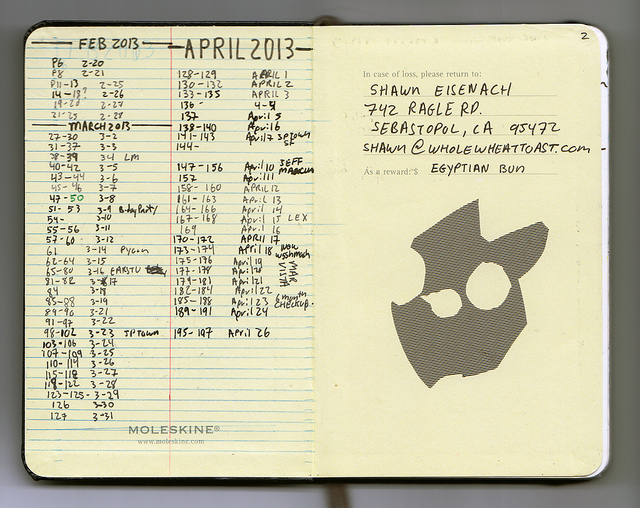 FEB 2013
P6 2-20
P8 2-21
P11-13 2-25
14-18? 2-26
19-20 2-27
21-25 2-28
MARCH 2013
27-30 3-2
31-37 3-3
38-39 3-4 LM
40-42 3-5
43-44 3-6
45-46 3-7
47-50 3-8
51-53 3-9 B-day Party
54- 3-10
55-56 3-11
57-60 3-12
61 3-14 Pycon
62-64 3-15
65-80 3-16
81-82 3-17
84 3-18
85-88 3-19
89-90 3-21
91-97 3-22
98-102 3-23 JPTOWN
103-106 3-24
107-109 3-25
110-114 3-26
115-118 3-27
118-122 3-28
123-125 3-29
126 3-30
127 3-31
APRIL 2013
128-129 APRIL 1
130-132 APRIL 2
133-135 APRIL 3
136- 4-4
137 April 5
138-140 April 6
141-143 April 7 JPTOWN SF
144-
147-156 April 10 JEFF
157 April 11
158-160 APRIL 12
161-163 April 13
164-166 April 14
167-168 April 15 LEX
169 April 16
170-172 APRIL 17
173-174 April 18
175-176 April 19
177-178 April 20
179-181 April 21
182-184 April 22
185-188 April 23 2 month CHECKUP.
189-191 April 24
195-197 April 26
MOLESKINE®
www.moleskine.com
2
In case of loss, please return to:
SHAWN EISENACH
742 RAGLE RD.
SEBASTOPOL, CA 95472
SHAWN@WHOLEWHEATTOAST.COM
As a reward: $ EGYPTIAN BUN